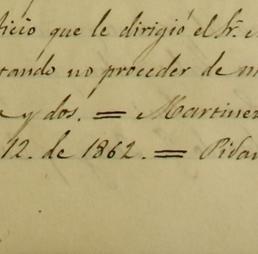 ficio que le dirigió el Sr.
tando no proceder de
y dos. = Martinez
12. de 1862. = Pidan